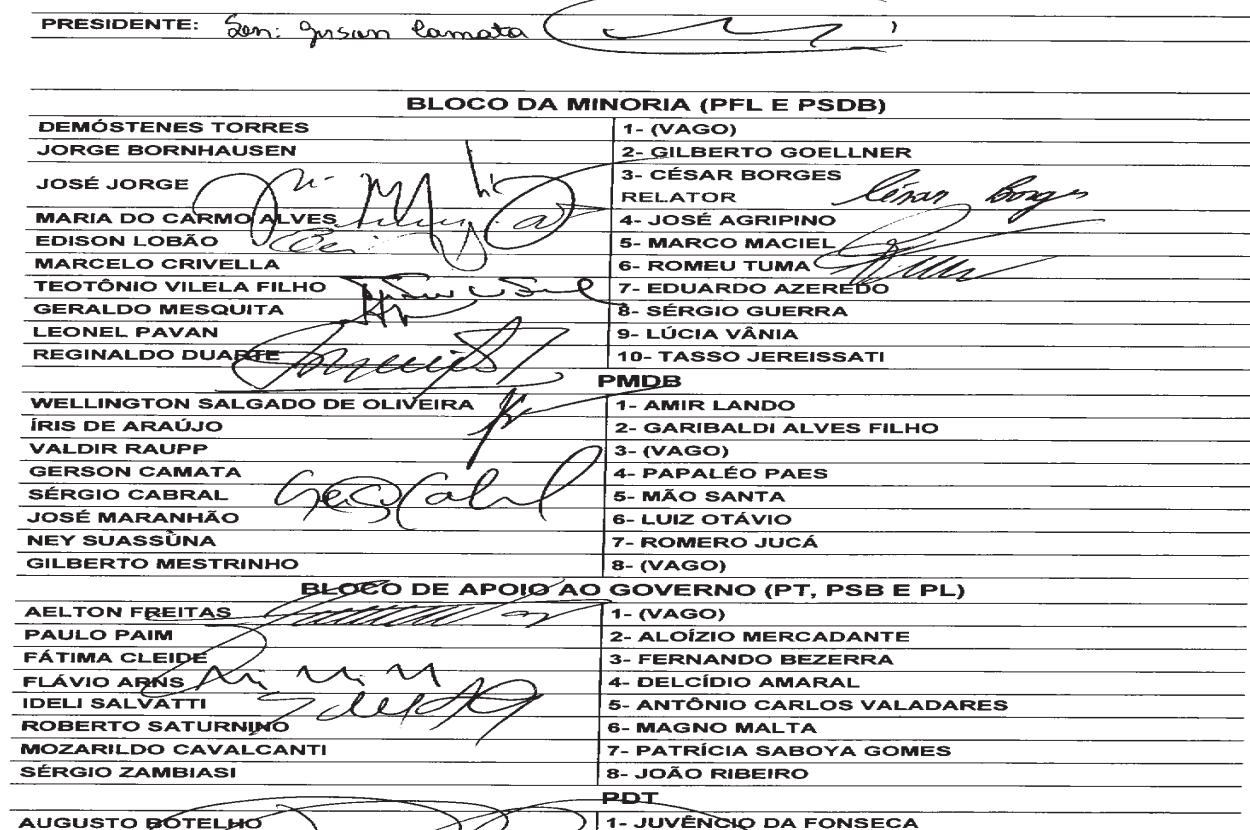 PRESIDENTE: Sen: Gerson Camata
BLOCO DA MINORIA (PFL E PSDB)
DEMÓSTENES TORRES 1- (VAGO)
JORGE BORNHAUSEN 2- GILBERTO GOELLNER
JOSÉ JORGE 3- CÉSAR BORGES
RELATOR César Borges
MARIA DO CARMO ALVES 4- JOSÉ AGRIPINO
EDISON LOBÃO 5- MARCO MACIEL
MARCELO CRIVELLA 6- ROMEU TUMA
TEOTÔNIO VILELA FILHO 7- EDUARDO AZEREDO
GERALDO MESQUITA 8- SÉRGIO GUERRA
LEONEL PAVAN 9- LÚCIA VÂNIA
REGINALDO DUARTE 10- TASSO JEREISSATI
PMDB
WELLINGTON SALGADO DE OLIVEIRA 1- AMIR LANDO
ÍRIS DE ARAÚJO 2- GARIBALDI ALVES FILHO
VALDIR RAUPP 3- (VAGO)
GERSON CAMATA 4- PAPALÉO PAES
SÉRGIO CABRAL 5- MÃO SANTA
JOSÉ MARANHÃO 6- LUIZ OTÁVIO
NEY SUASSÙNA 7- ROMERO JUCÁ
GILBERTO MESTRINHO 8- (VAGO)
BLOCO DE APOIO AO GOVERNO (PT, PSB E PL)
AELTON FREITAS 1- (VAGO)
PAULO PAIM 2- ALOÍZIO MERCADANTE
FÁTIMA CLEIDE 3- FERNANDO BEZERRA
FLÁVIO ARNS 4- DELCÍDIO AMARAL
IDELI SALVATTI 5- ANTÔNIO CARLOS VALADARES
ROBERTO SATURNINO 6- MAGNO MALTA
MOZARILDO CAVALCANTI 7- PATRÍCIA SABOYA GOMES
SÉRGIO ZAMBIASI 8- JOÃO RIBEIRO
PDT
AUGUSTO BOTELHO 1- JUVÊNCIO DA FONSECA